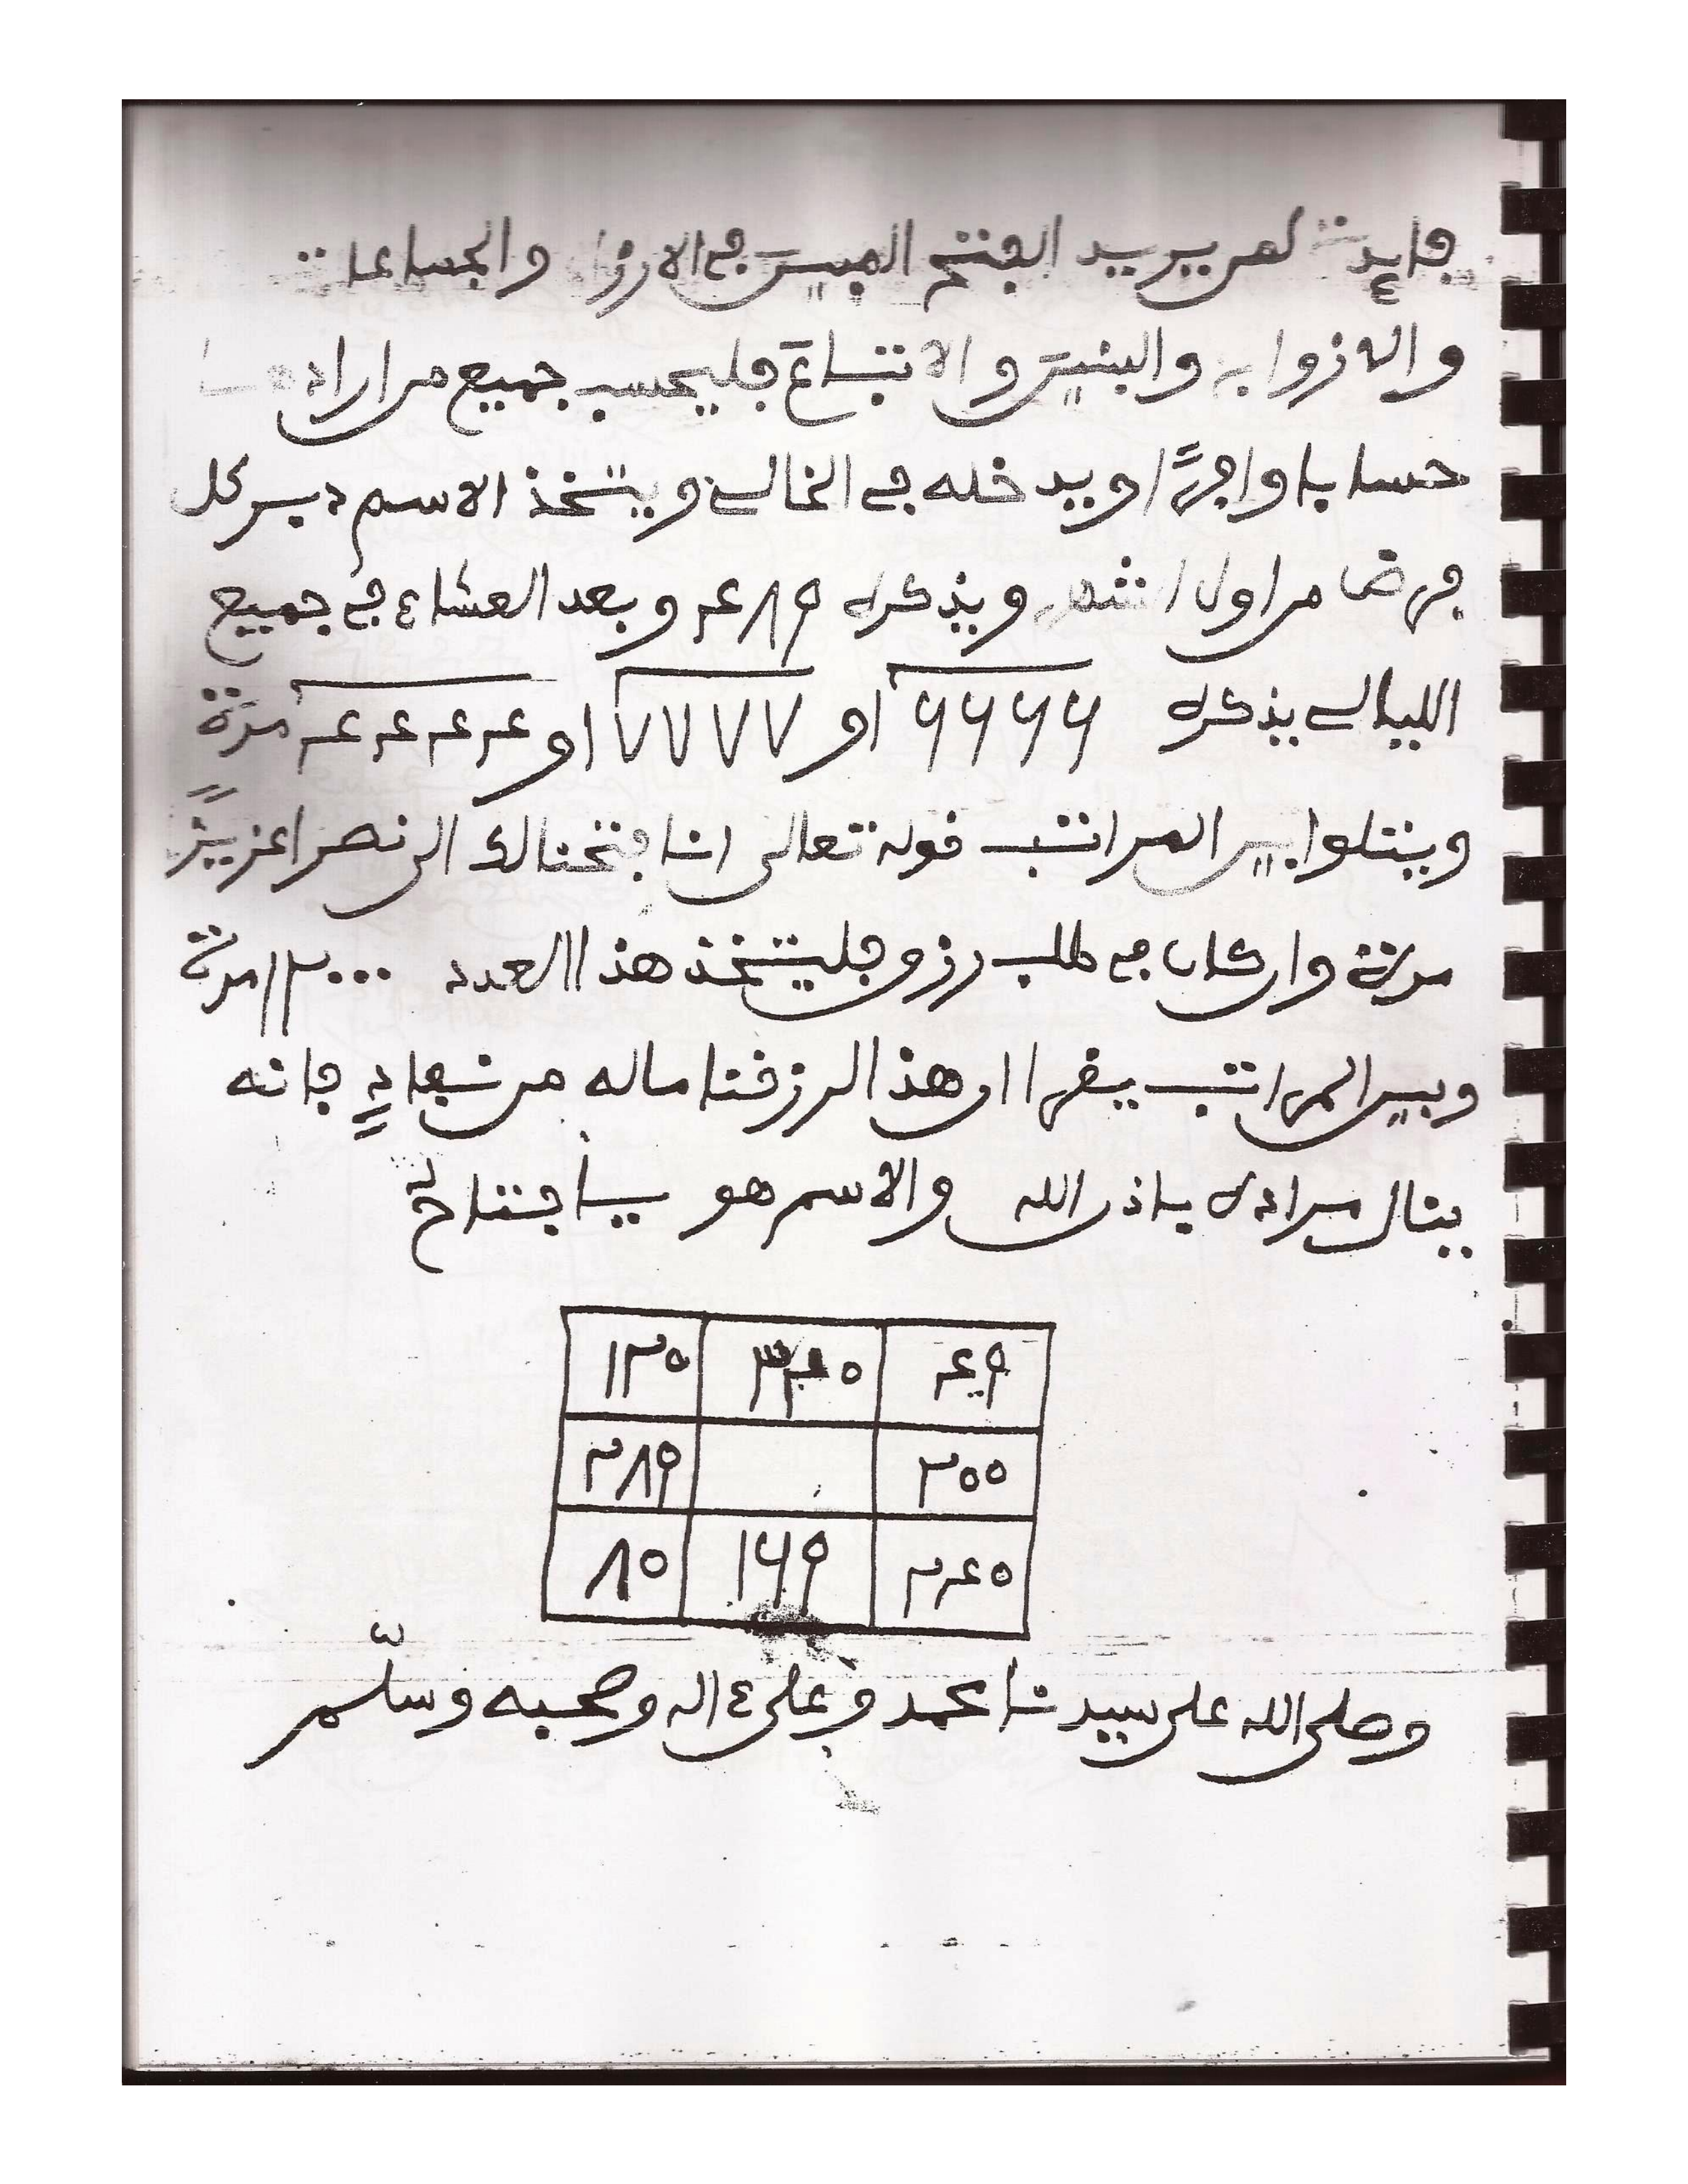 فايدة لمن يريد الفتح المبين في الارزاق والجماعات
والازواج والبنين والاتباع فليحسب جميع مراراده
حسابا وافرًا ويدخله في الخالى ويتخذ الاسم دبر كل
فرض من اول الشهر ويذكره ٤٨٩ وبعد العشاء في جميع
الليالى يذكره ٦٦٦٦ او ٧٧٧٧ او ٤٤٤٤ مرّة
ويتلوا بين المراتب قوله تعالى انا فتحنا لك الى نصرا عزيزًا
مرة وان كان في طلب رزق فليتخذ هذا العدد ١٢٠٠٠ مرة
وبين المراتب يقرا ان هذا لرزقنا ماله من نفادٍ فانه
ينال مراده باذن الله والاسم هو يا فتاحُ
١٢٥ ٤٩
٢٨٩ ٢٥٥
٨٥ ١٦٩ ٢٤٥
وصلى الله على سيدنا محمد وعلى ءاله وصحبه وسلّم